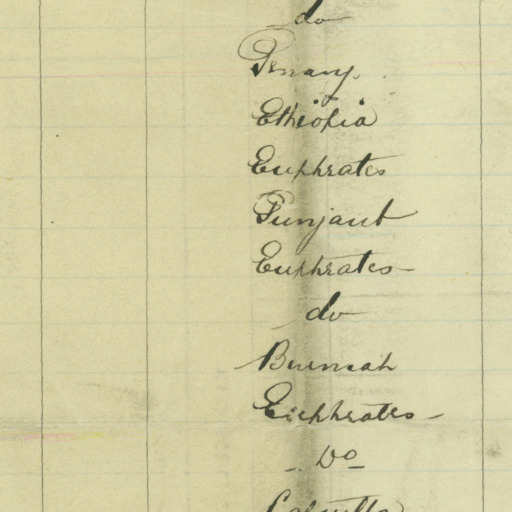 do
Penang
Ethiopia
Euphrates
Punjaub
Euphrates -
do
Burmah
Euphrates -
Do
Calcutta